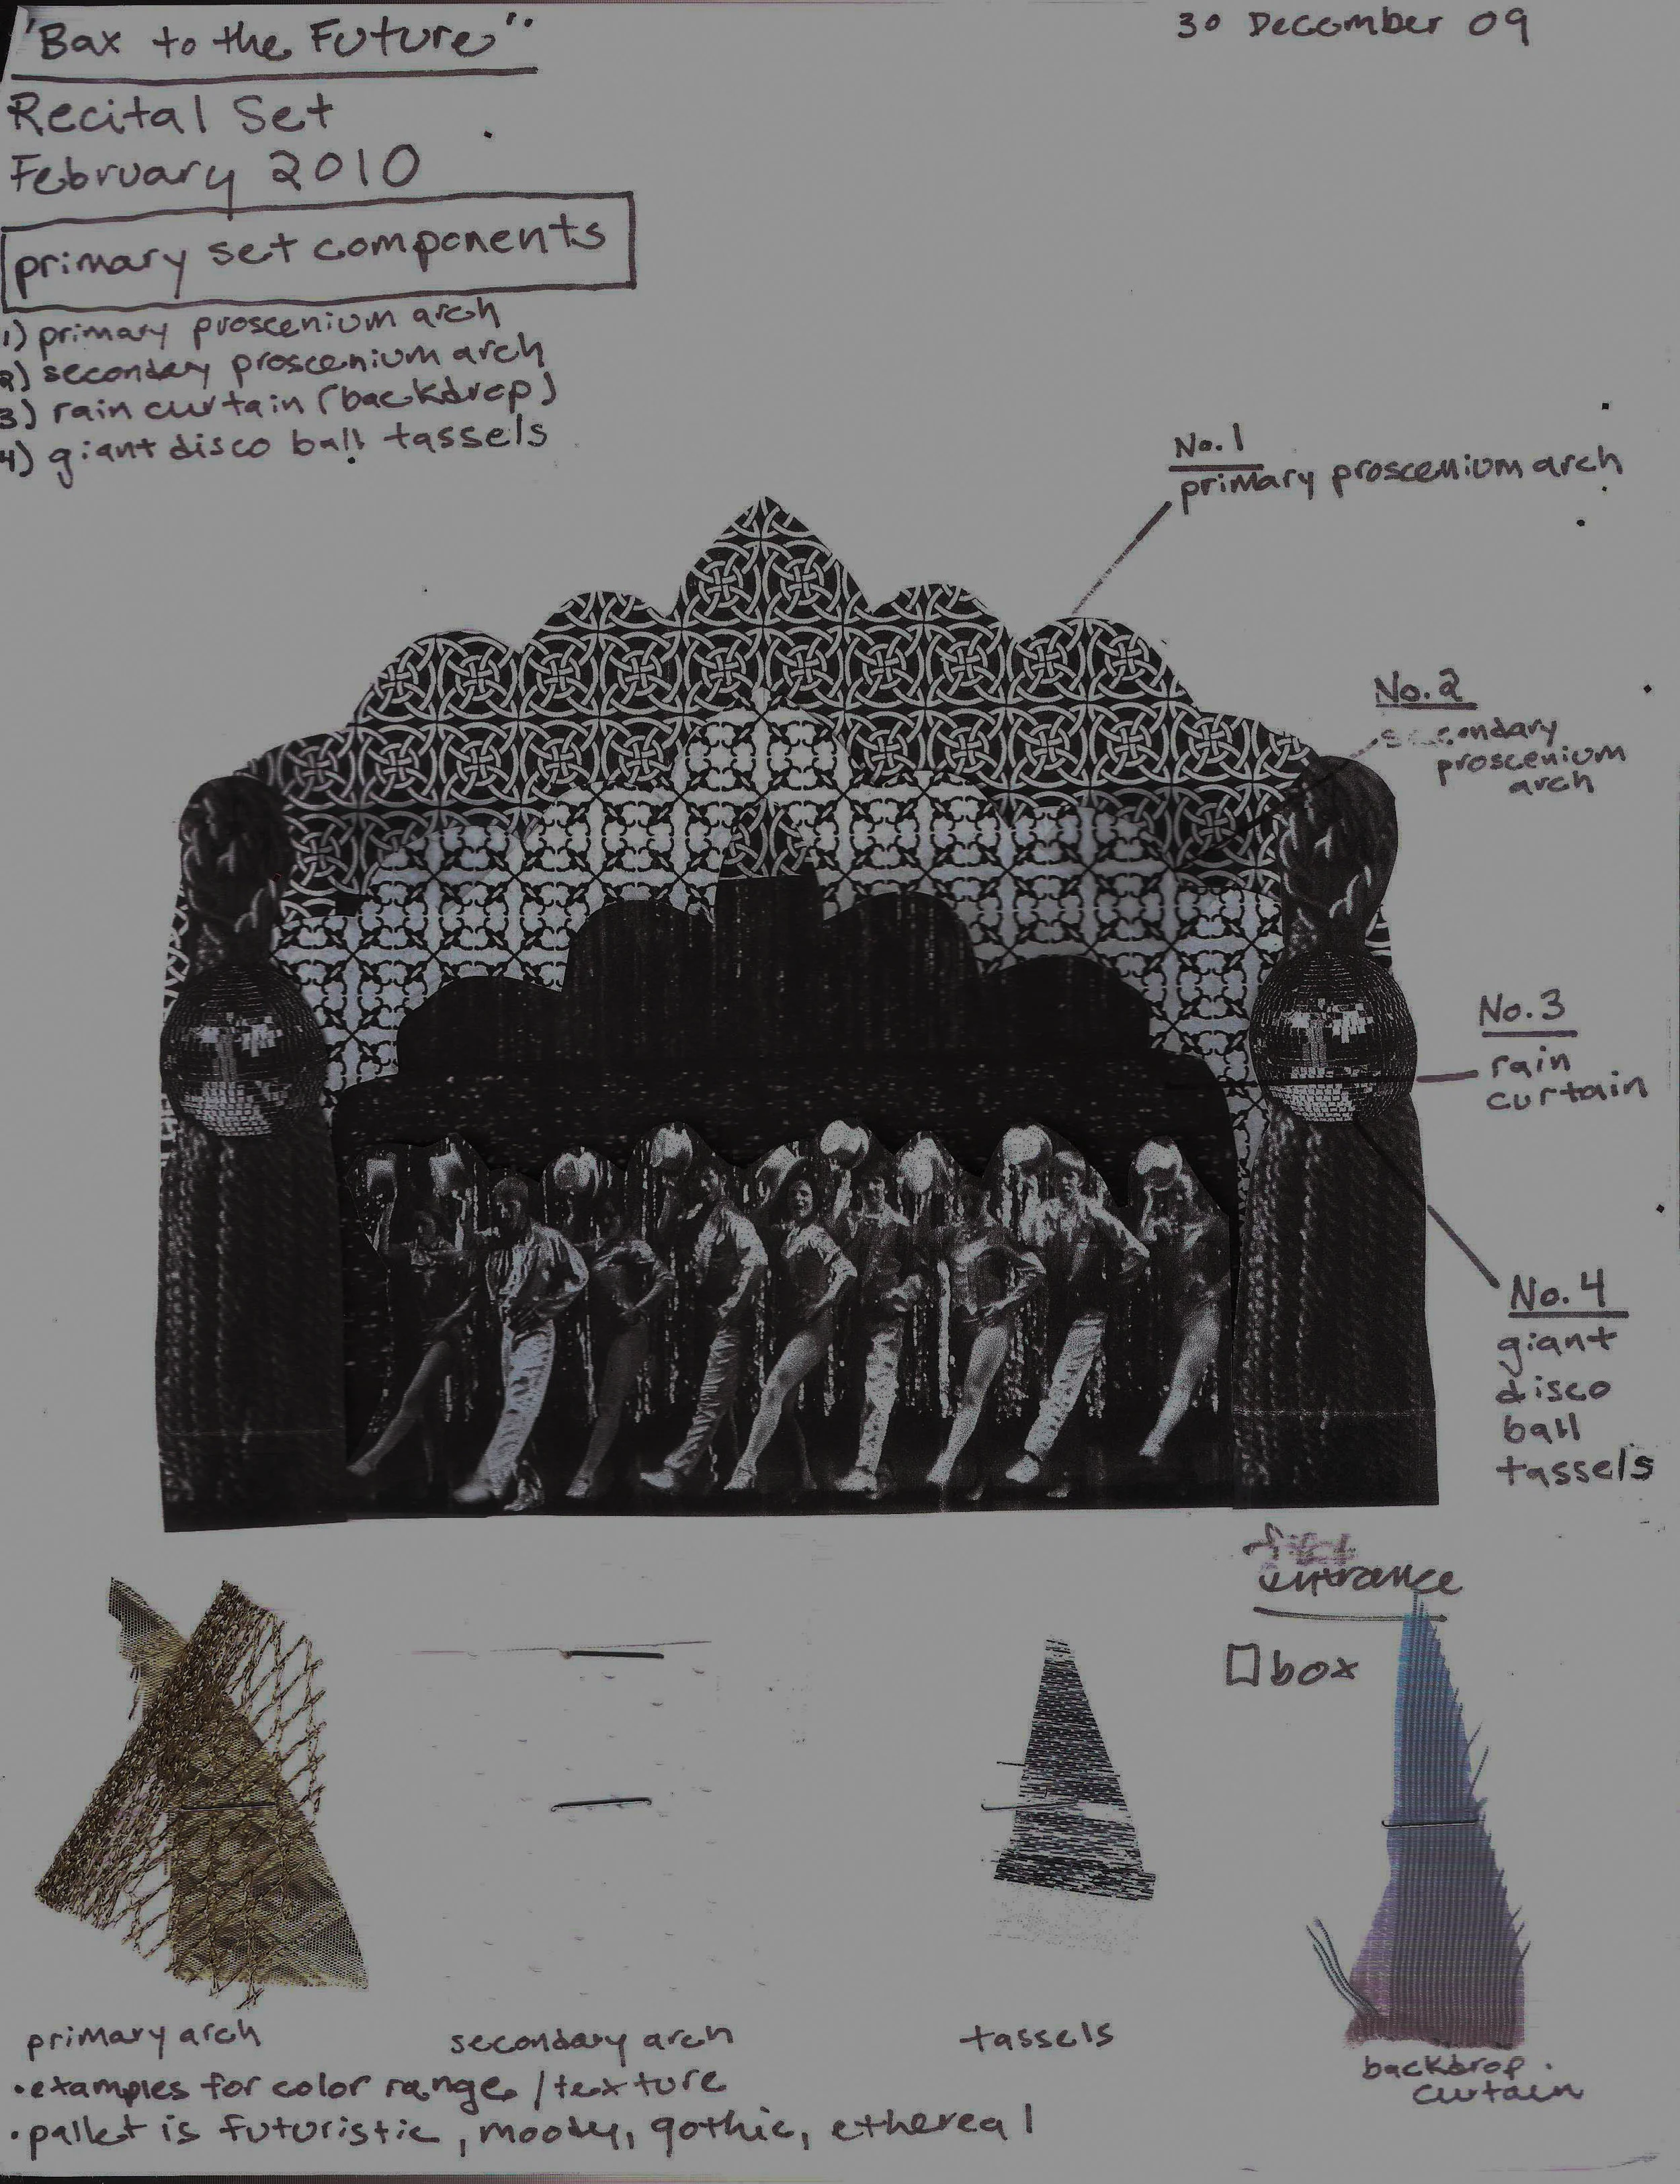 "Bax to the Future"
30 December 09
Recital Set
February 2010
primary set components
1) primary proscenium arch
2) secondary proscenium arch
3) rain curtain (backdrop)
4) giant disco ball tassels
No. 1
primary proscenium arch
No. 2
secondary
proscenium
arch
No. 3
rain
curtain
No. 4
giant
disco
ball
tassels
entrance
box
primary arch
secondary arch
tassels
backdrop
curtain
• examples for color range / texture
• pallet is futuristic, moody, gothic, ethereal